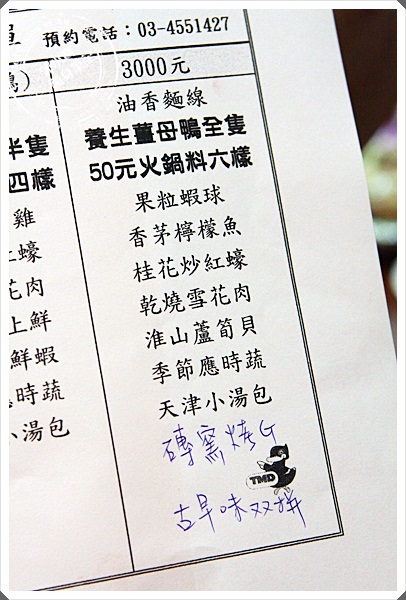 預約電話：03-4551427
3000元
油香麵線
養生薑母鴨全隻
50元火鍋料六樣
果粒蝦球
香茅檸檬魚
桂花炒紅蠔
乾燒雪花肉
淮山蘆筍貝
季節應時蔬
天津小湯包
磚窯烤G
古早味双拼
TMD
半隻
四樣
雞
蠔
花肉
上鮮
鮮蝦
應時蔬
小湯包